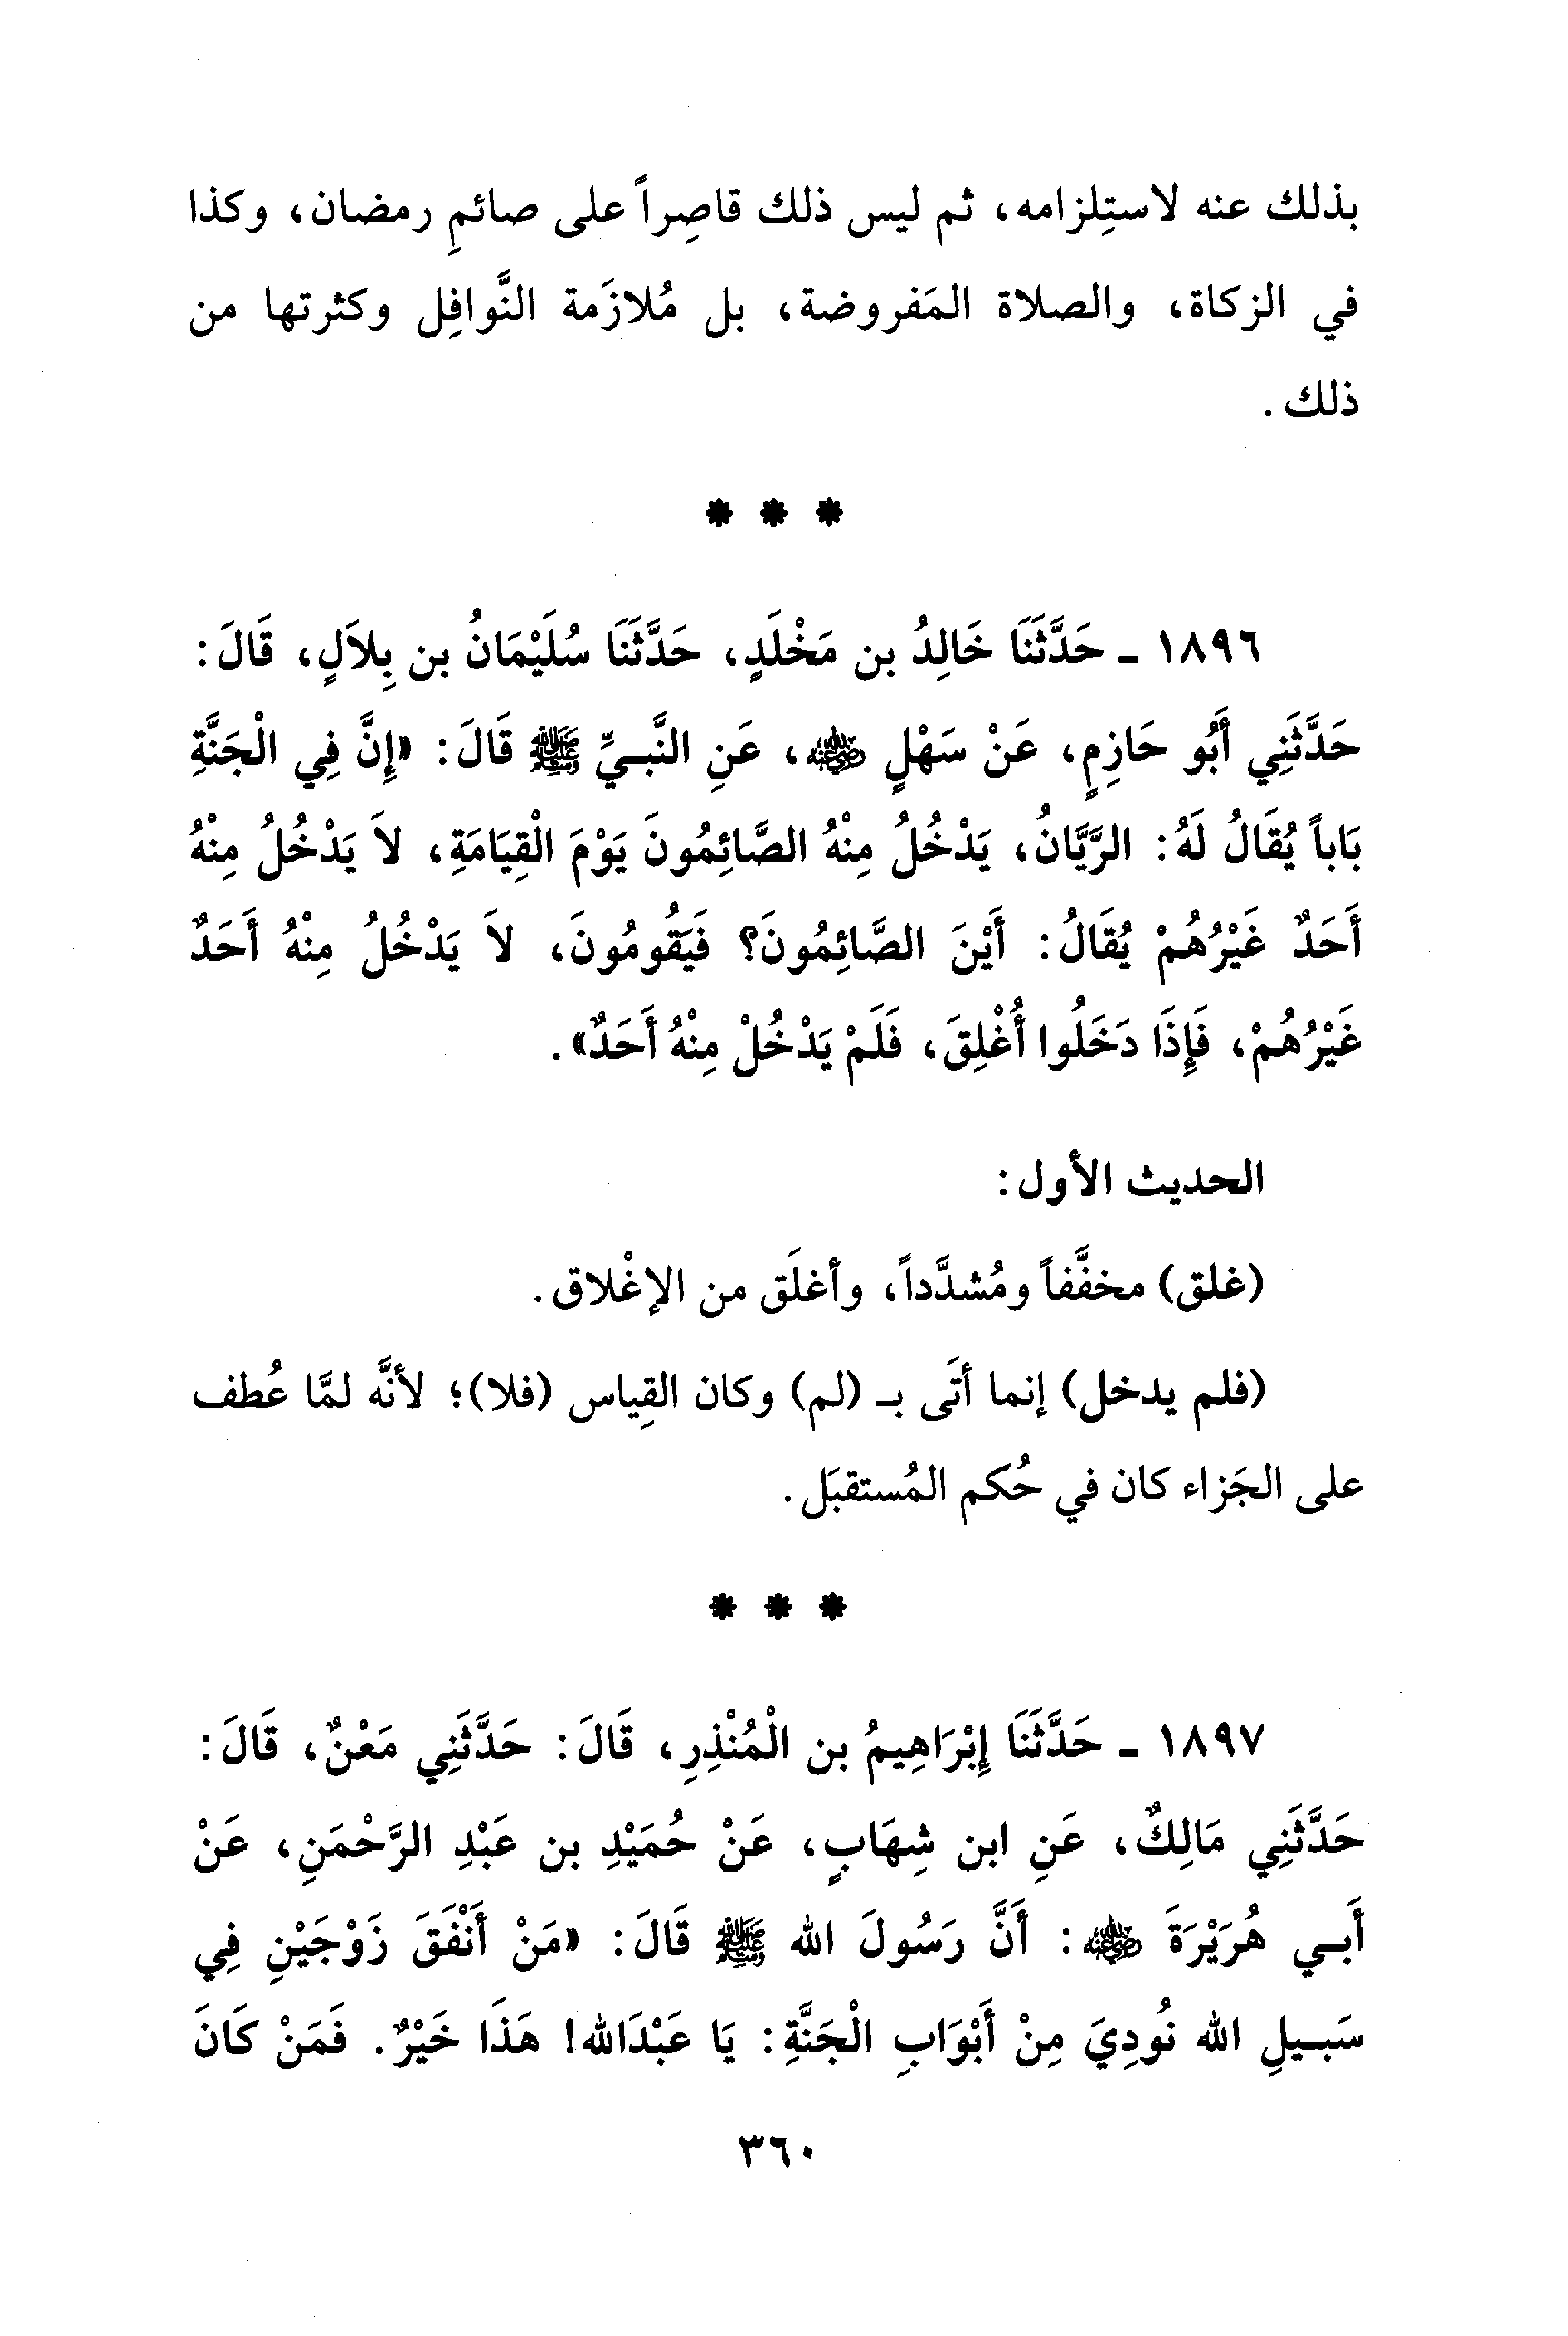 بذلك عنه لاستِلزامه، ثم ليس ذلك قاصِراً على صائمِ رمضان، وكذا
في الزكاة، والصلاة المَفروضة، بل مُلازَمة النَّوافِل وكثرتها من
ذلك.
* * *
١٨٩٦ ـ حَدَّثَنَا خَالِدُ بن مَخْلَدٍ، حَدَّثَنَا سُلَيْمَانُ بن بِلاَلٍ، قَالَ:
حَدَّثَنِي أَبُو حَازِمٍ، عَنْ سَهْلٍ رضي الله عنه، عَنِ النَّبِيِّ ﷺ قَالَ: «إِنَّ فِي الْجَنَّةِ
بَاباً يُقَالُ لَهُ: الرَّيَّانُ، يَدْخُلُ مِنْهُ الصَّائِمُونَ يَوْمَ الْقِيَامَةِ، لاَ يَدْخُلُ مِنْهُ
أَحَدٌ غَيْرُهُمْ يُقَالُ: أَيْنَ الصَّائِمُونَ؟ فَيَقُومُونَ، لاَ يَدْخُلُ مِنْهُ أَحَدٌ
غَيْرُهُمْ، فَإِذَا دَخَلُوا أُغْلِقَ، فَلَمْ يَدْخُلْ مِنْهُ أَحَدٌ».
الحديث الأول:
(غلق) مخفَّفاً ومُشدَّداً، وأغلَق من الإغْلاق.
(فلم يدخل) إنما أتَى بـ (لم) وكان القِياس (فلا)؛ لأنَّه لمَّا عُطف
على الجَزاء كان في حُكم المُستقبَل.
* * *
١٨٩٧ ـ حَدَّثَنَا إِبْرَاهِيمُ بن الْمُنْذِرِ، قَالَ: حَدَّثَنِي مَعْنٌ، قَالَ:
حَدَّثَنِي مَالِكٌ، عَنِ ابن شِهَابٍ، عَنْ حُمَيْدِ بن عَبْدِ الرَّحْمَنِ، عَنْ
أَبِي هُرَيْرَةَ رضي الله عنه: أَنَّ رَسُولَ الله ﷺ قَالَ: «مَنْ أَنْفَقَ زَوْجَيْنِ فِي
سَبِيلِ الله نُودِيَ مِنْ أَبْوَابِ الْجَنَّةِ: يَا عَبْدَالله! هَذَا خَيْرٌ. فَمَنْ كَانَ
٣٦٠